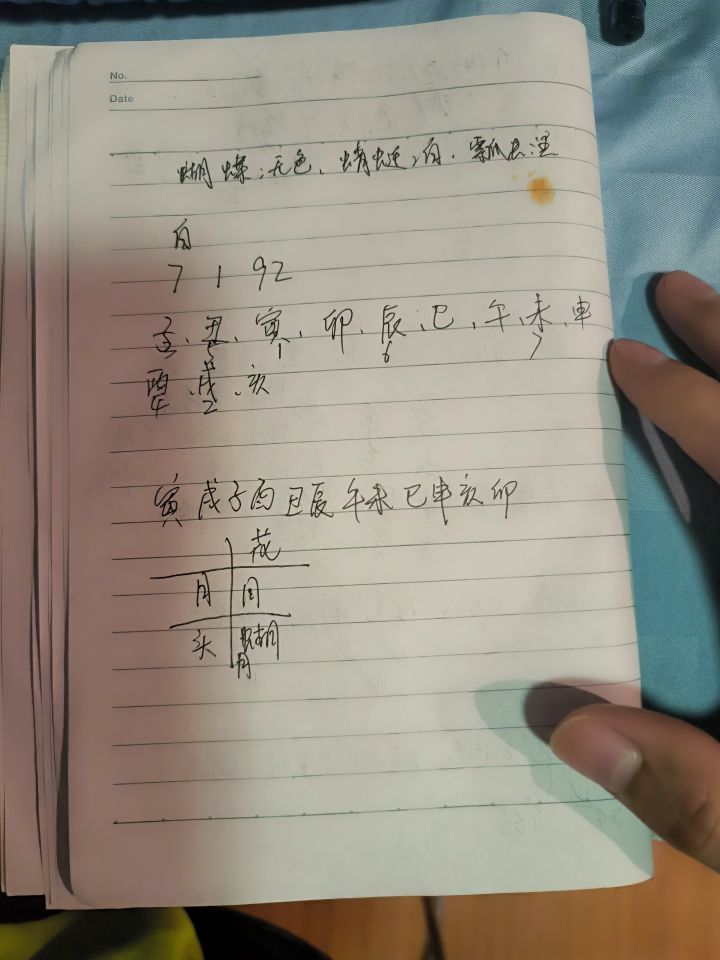 No.
Date
蝴蝶:无色、蜻蜓:白、瓢虫:
白
7 1 92
子、丑、寅、卯、辰、巳、午、未、申
5 1 6 7
酉、戌、亥
4 2
寅戌子酉丑辰午未巳申亥卯
花
月
头 蝴